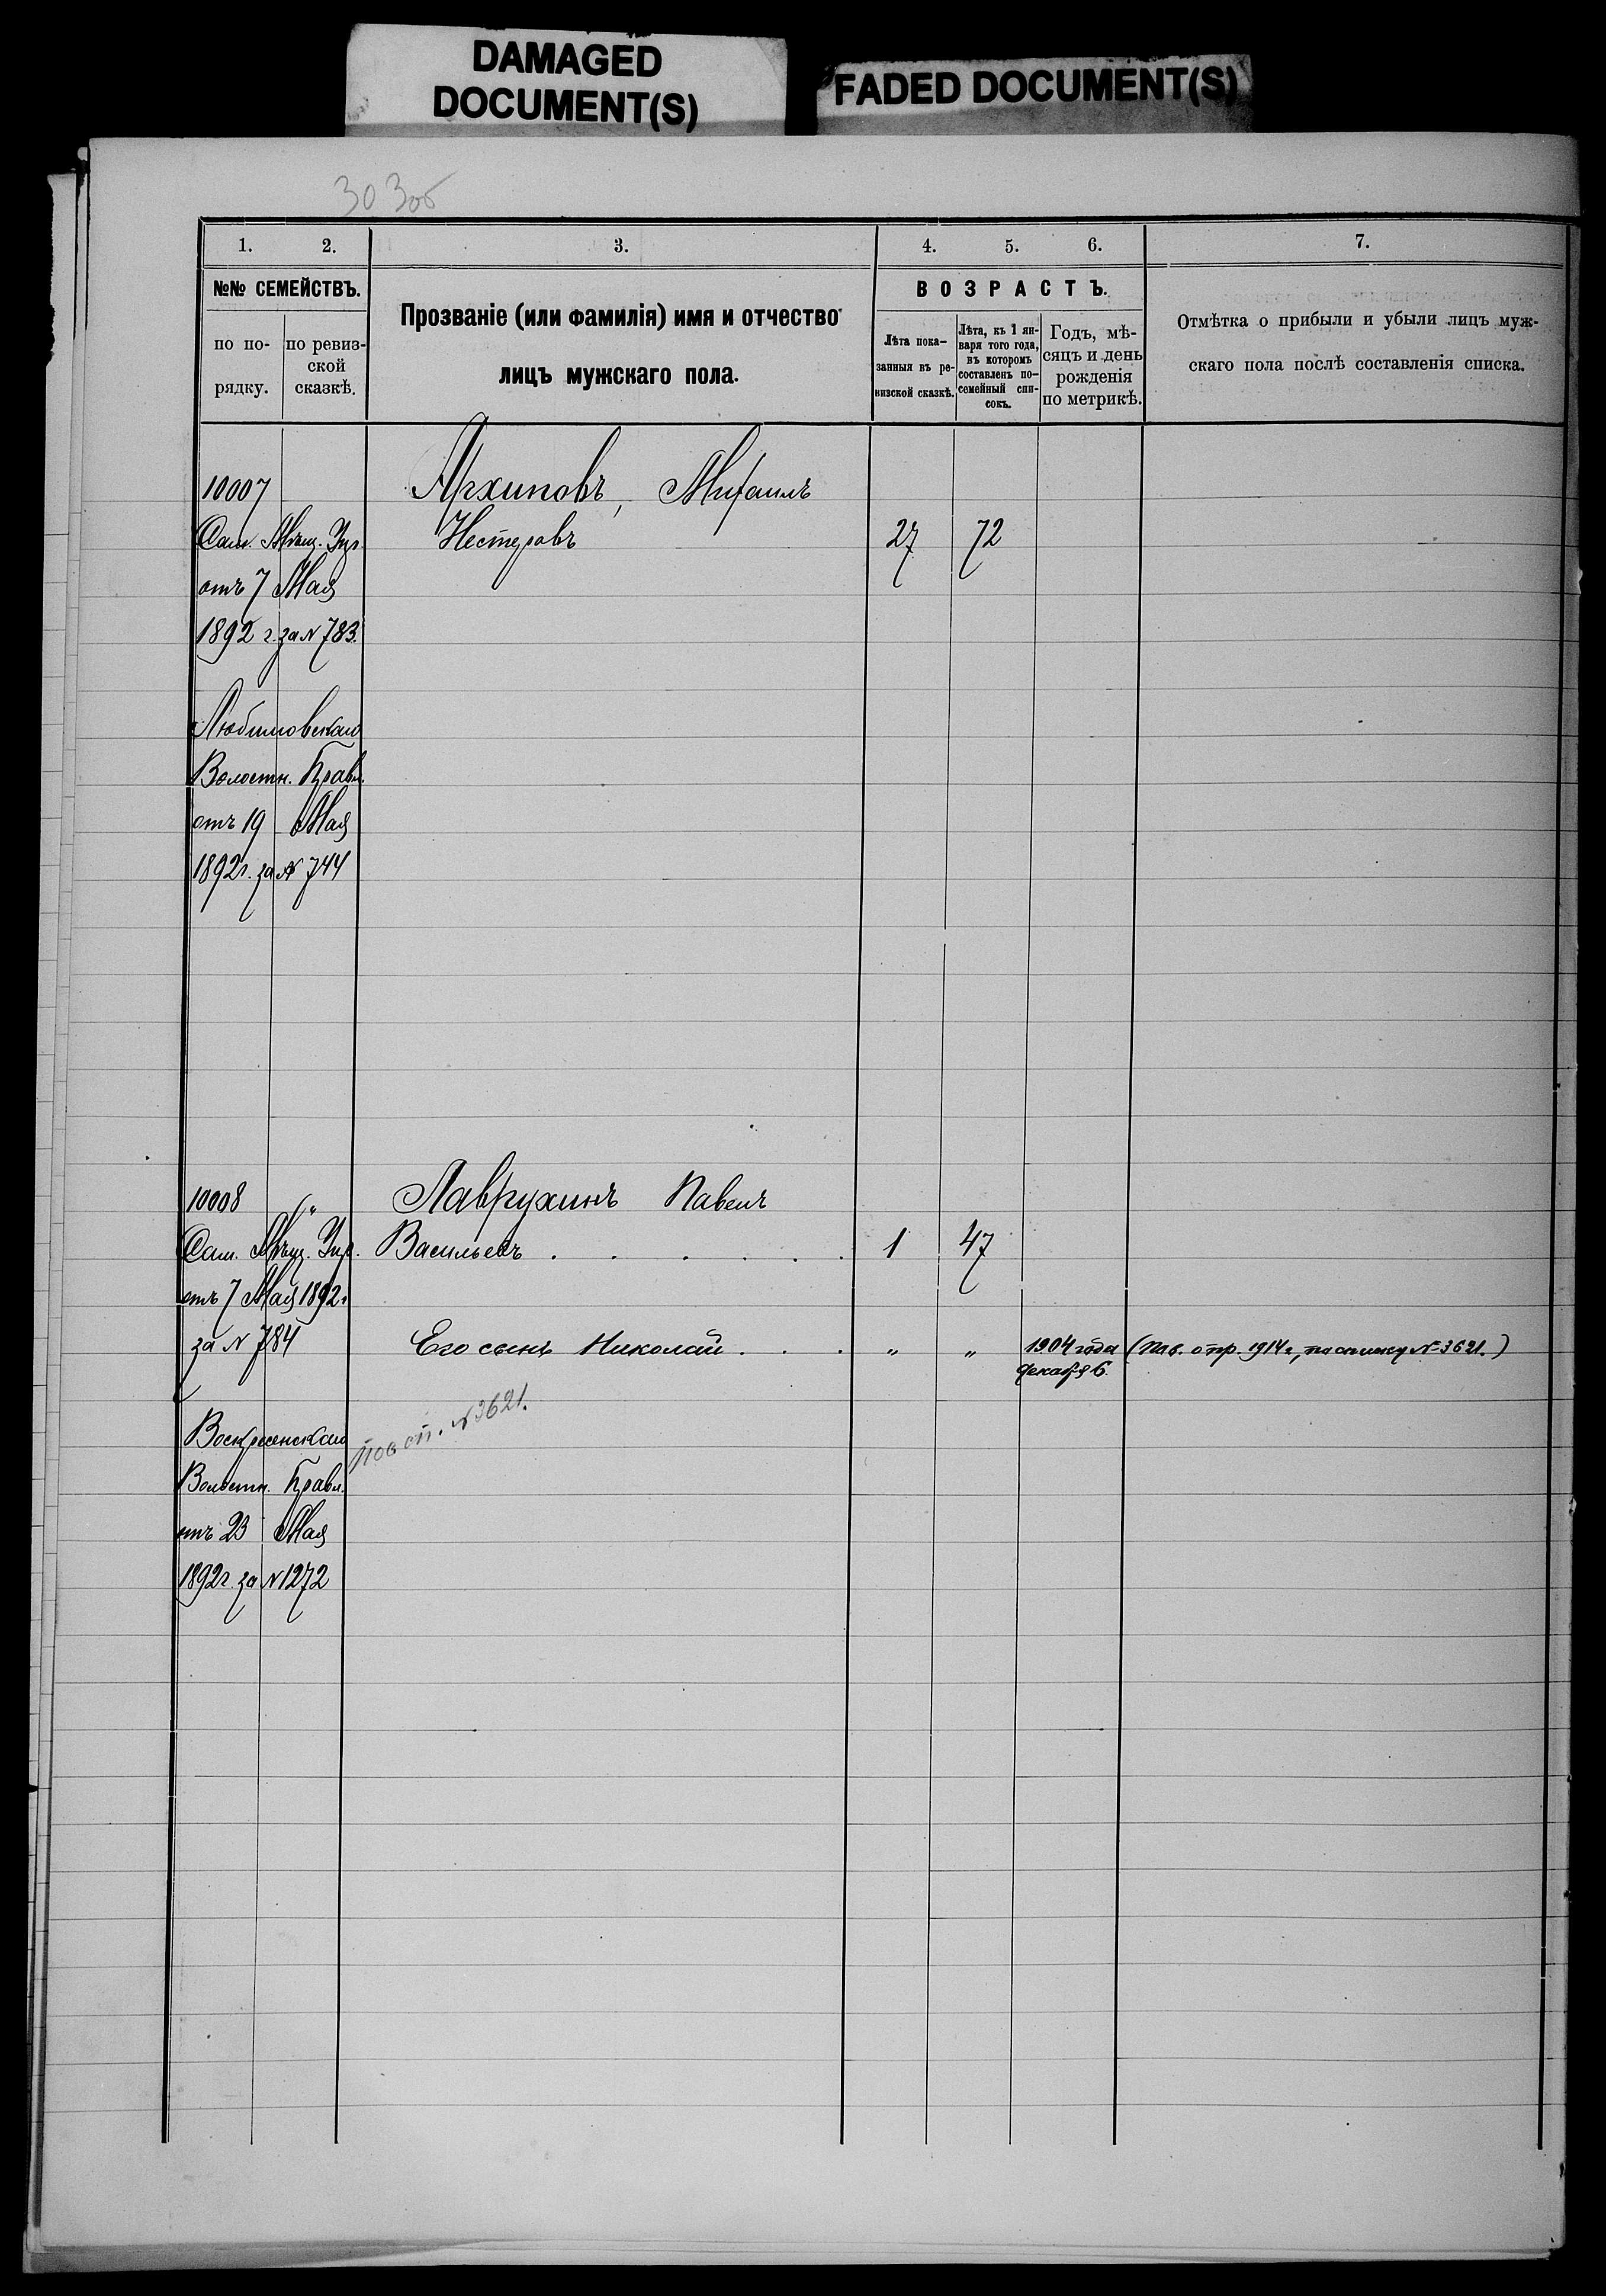 DAMAGED
DOCUMENT(S)
FADED DOCUMENT(S)
303об
1. 2. 3. 4. 5. 6. 7.
№№ СЕМЕЙСТВЪ.
по по-
рядку.
по ревиз-
ской
сказкѣ.
Прозваніе (или фамилія) имя и отчество
лицъ мужскаго пола.
ВОЗРАСТЪ.
Лѣта пока-
занныя въ ре-
визской сказкѣ.
Лѣта, къ 1 ян-
варя того года,
въ которомъ
составленъ по-
семейный спи-
сокъ.
Годъ, мѣ-
сяцъ и день
рожденія
по метрикѣ.
Отмѣтка о прибыли и убыли лицъ муж-
скаго пола послѣ составленія списка.
10007 Архиповъ, Михаилъ
Сам. Мѣщ. Упр. Нестеровъ 27 72
отъ 7 Мая
1892 г. за № 783.
Любимовскаго
Волостн. Правл.
отъ 19 Мая
1892 г. за № 744
10008 „ Лаврухинъ Павелъ
Сам. Мѣщ. Упр. Васильевъ . . . . . . 1 47
отъ 7 Мая 1892 г.
за № 784 Его сынъ Николай . . . „ „ 1904 года (Пав. отпр. 1914 г., по списку № 3621.)
Декабря 6.
пос сп. № 3621.
Воскресенскаго
Волостн. Правл.
отъ 23 Мая
1892 г. за № 1272